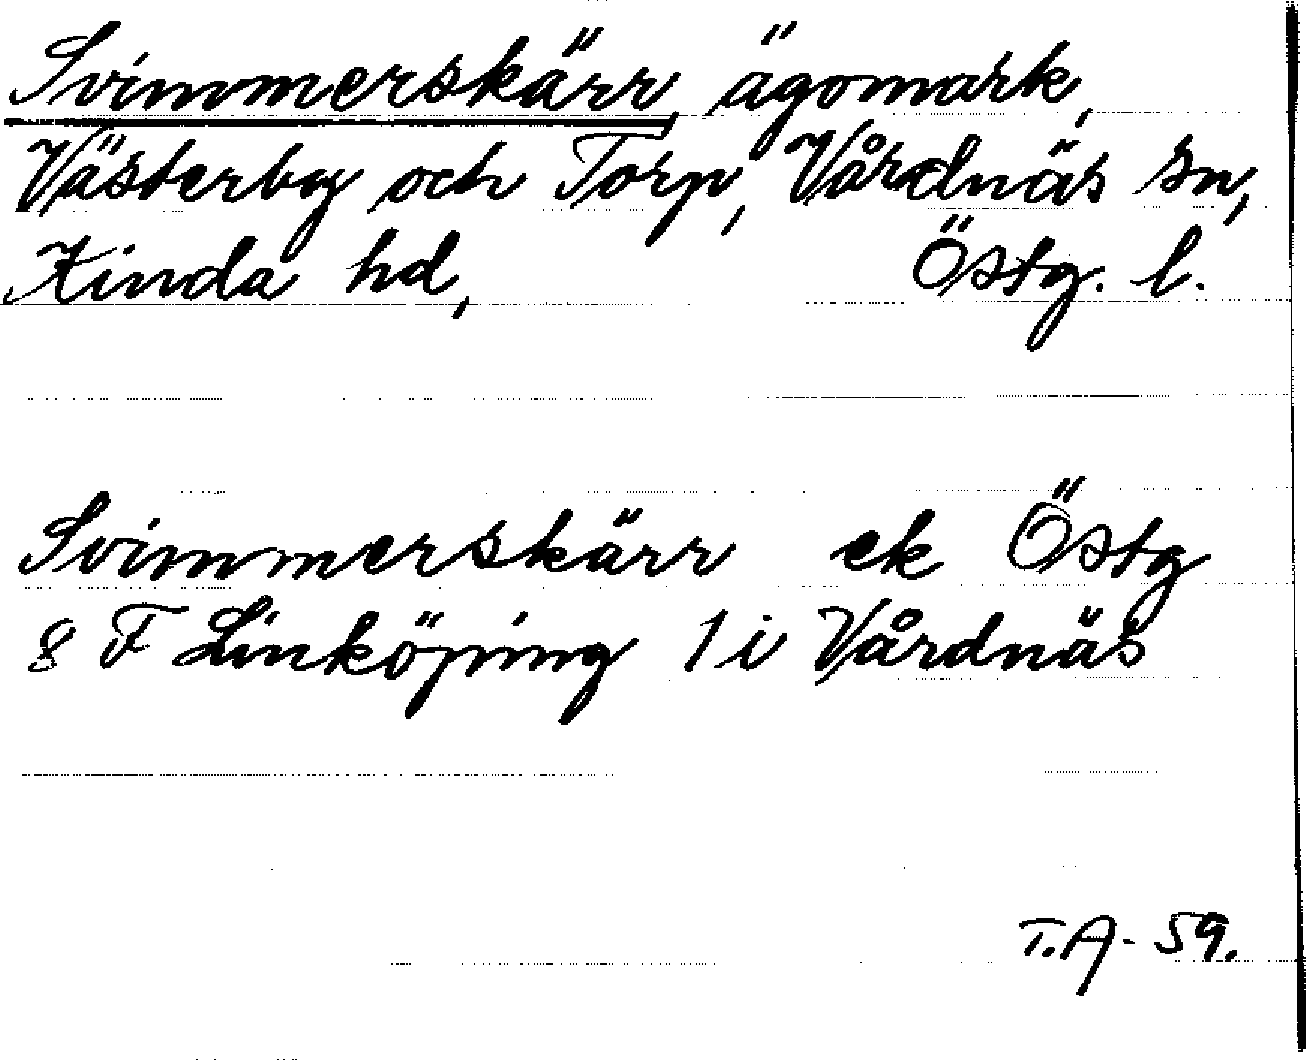 Svimmerskärr, ägomark,
Västerby och Torp, Vårdnäs sn,
Kinda hd, Östg. l.
Svimmerskärr ek Östg
8 F Linköping 1 i Vårdnäs
T.A- 59.